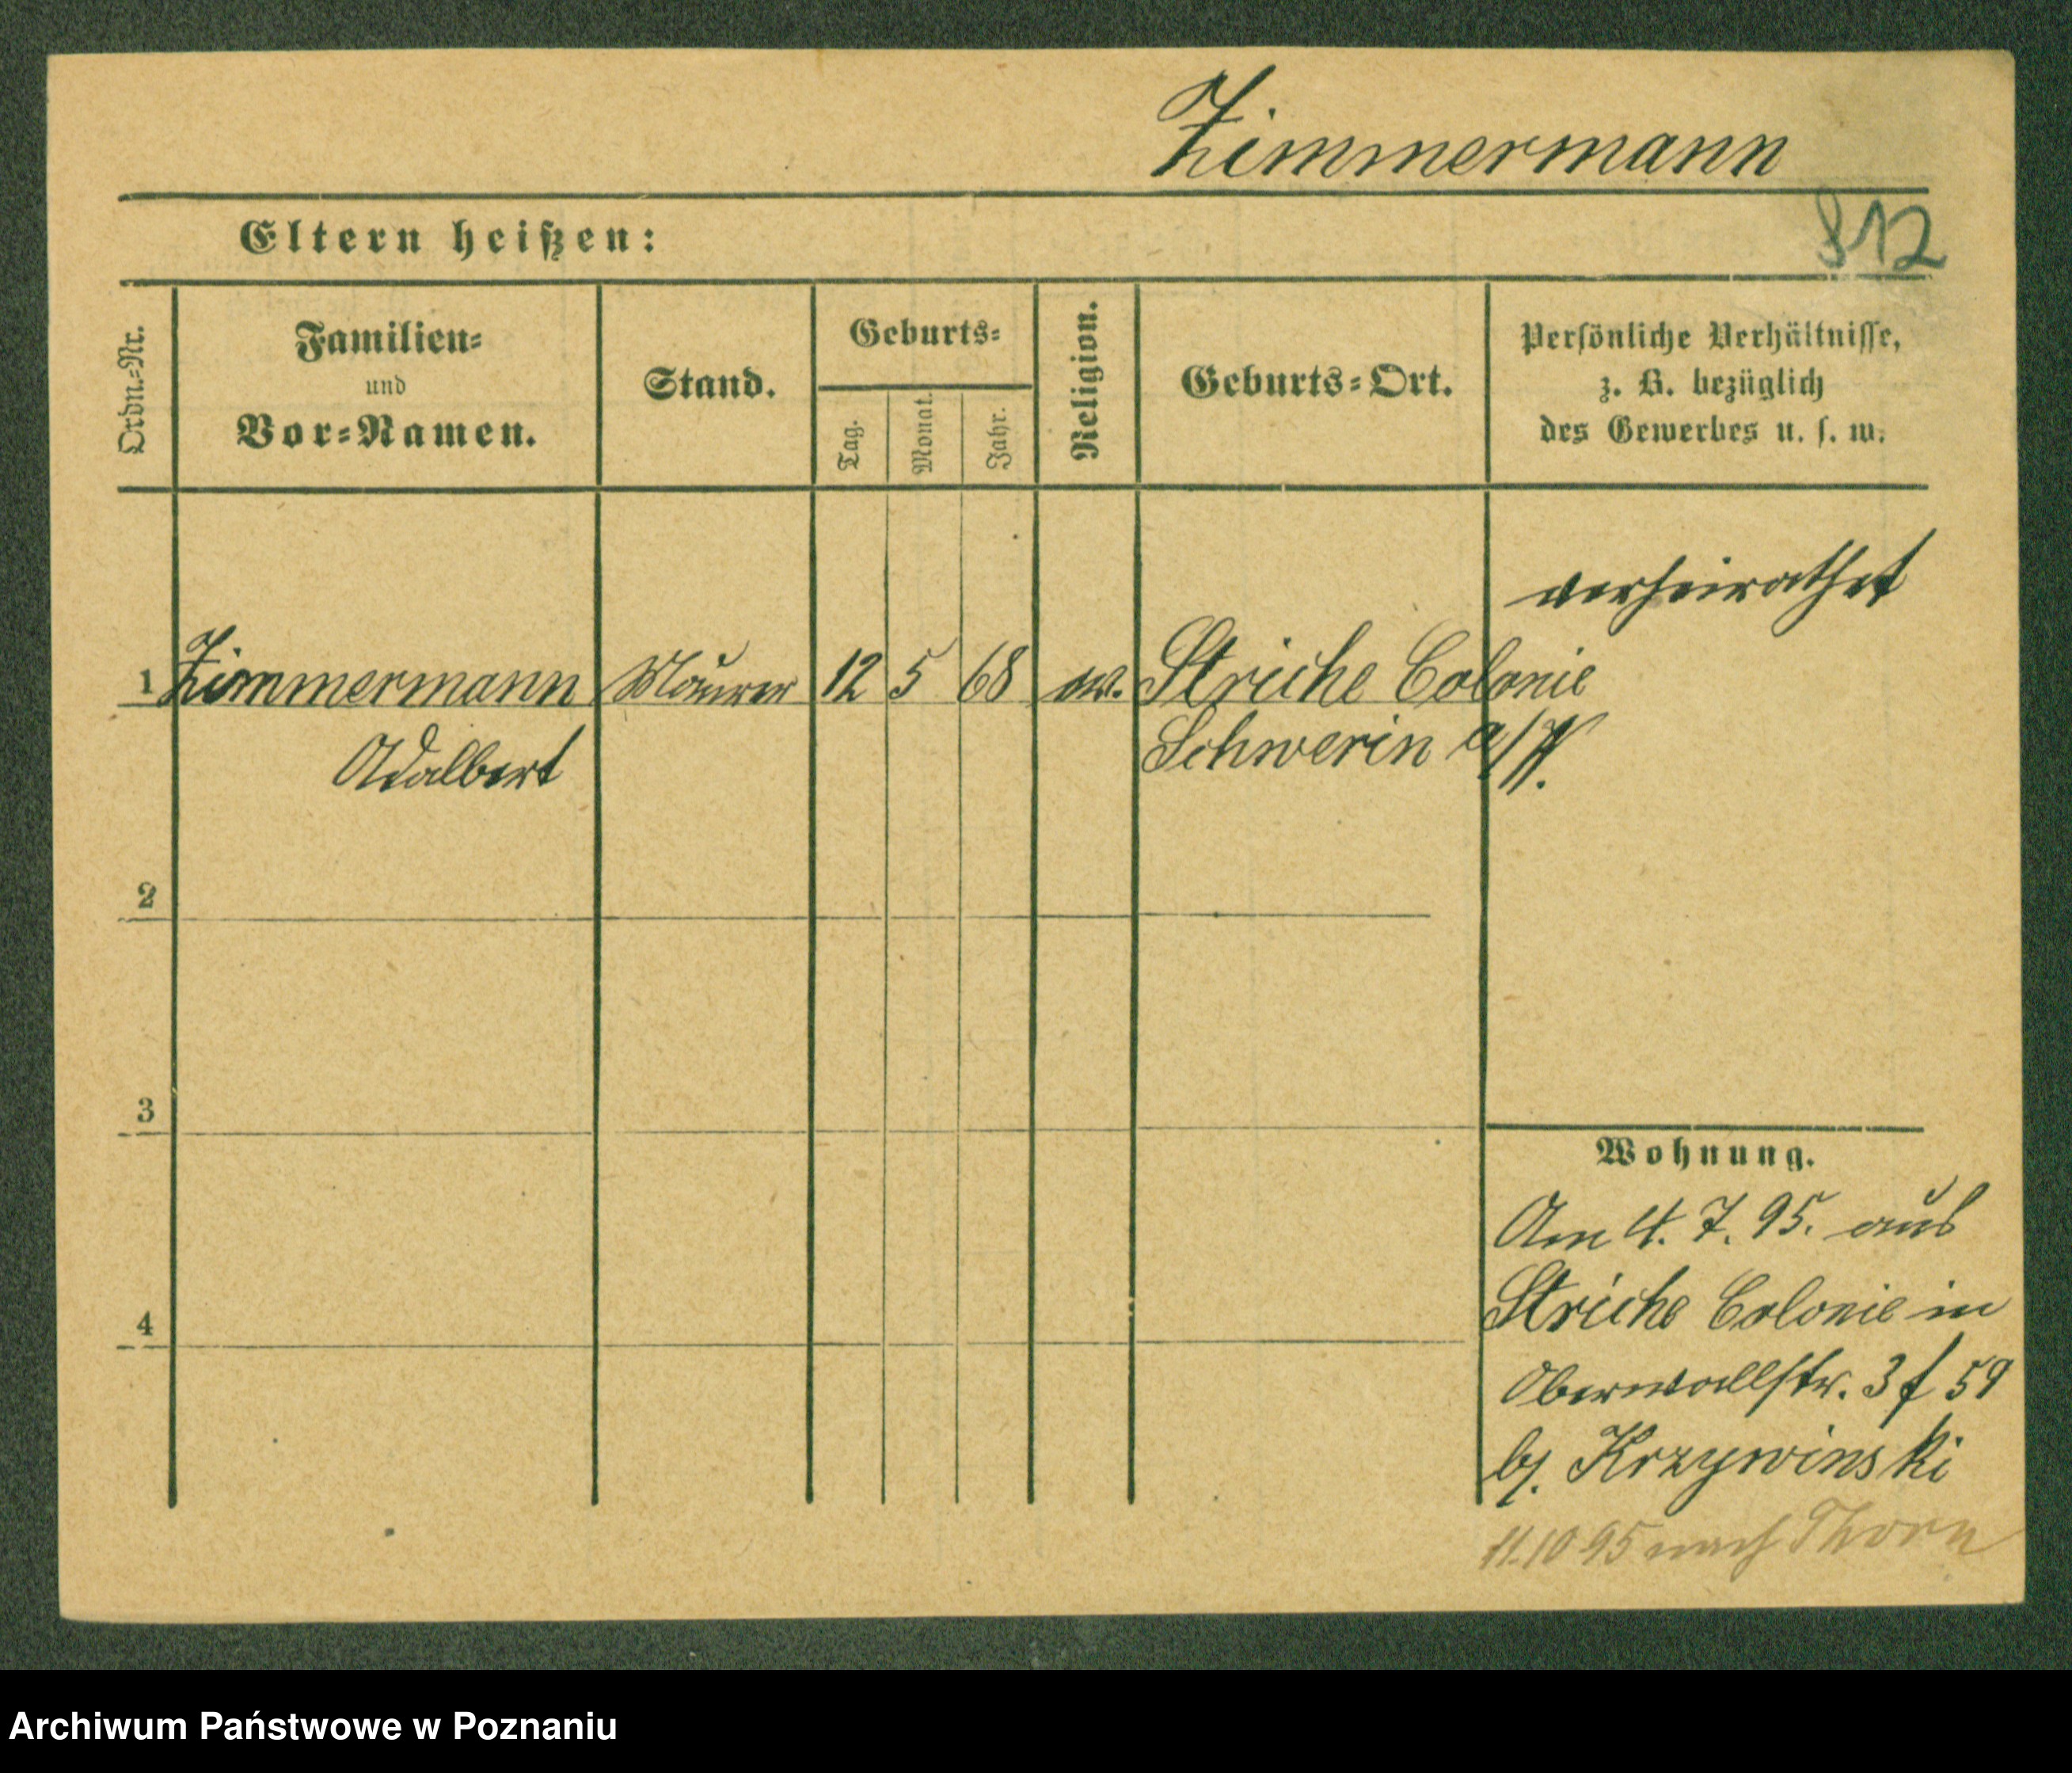 Zimmermann
812
Eltern heißen:
Ordn.=Nr.
Familien=
und
Vor=Namen.
Stand.
Geburts=
Tag.
Monat.
Jahr.
Religion.
Geburts=Ort.
Persönliche Verhältnisse,
z. B. bezüglich
des Gewerbes u. s. w.
verheirathet
1 Zimmermann Maurer 12 5 68 ev. Striche Colonie
Adalbert Schwerin a/W.
2
3
Wohnung.
Am 4. 7. 95. aus
Striche Colonie in
4
Oberwallstr. 3 f 59
bj. Krzywinski
11.10 95 nach Thorn
Archiwum Państwowe w Poznaniu